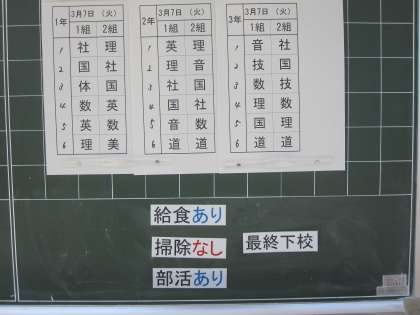 1年 3月7日 (火)
1組 2組
1 社 理
2 国 社
3 体 国
4 数 英
5 英 数
6 理 美
2年 3月7日 (火)
1組 2組
1 英 理
2 理 音
3 社 国
4 国 社
5 音 数
6 道 道
3年 3月7日 (火)
1組 2組
1 音 社
2 技 国
3 数 技
4 理 数
5 国 理
6 道 道
給食あり
掃除なし
最終下校
部活あり